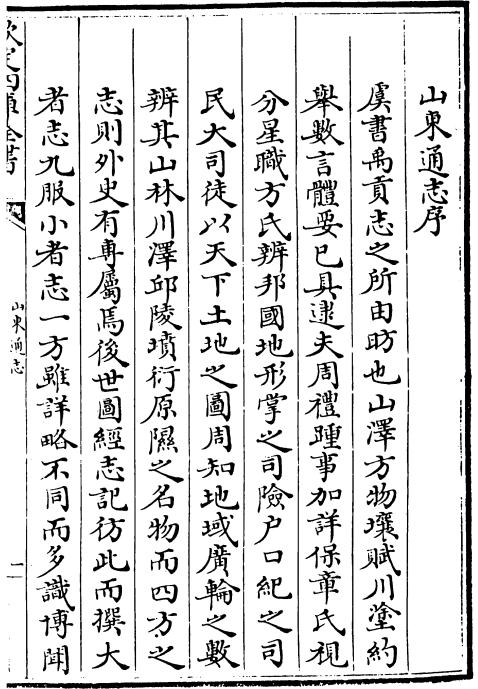 山東通志序
虞書禹貢志之所由昉也山澤方物壤賦川塗約
舉數言體要已具逮夫周禮踵事加詳保章氏視
分星職方氏辨邦國地形掌之司險户口紀之司
民大司徒以天下土地之圖周知地域廣輪之數
辨其山林川澤邱陵墳衍原隰之名物而四方之
志則外史有專屬焉後世圖經志記彷此而撰大
者志九服小者志一方雖詳略不同而多識博聞
欽定四庫全書
山東通志
一